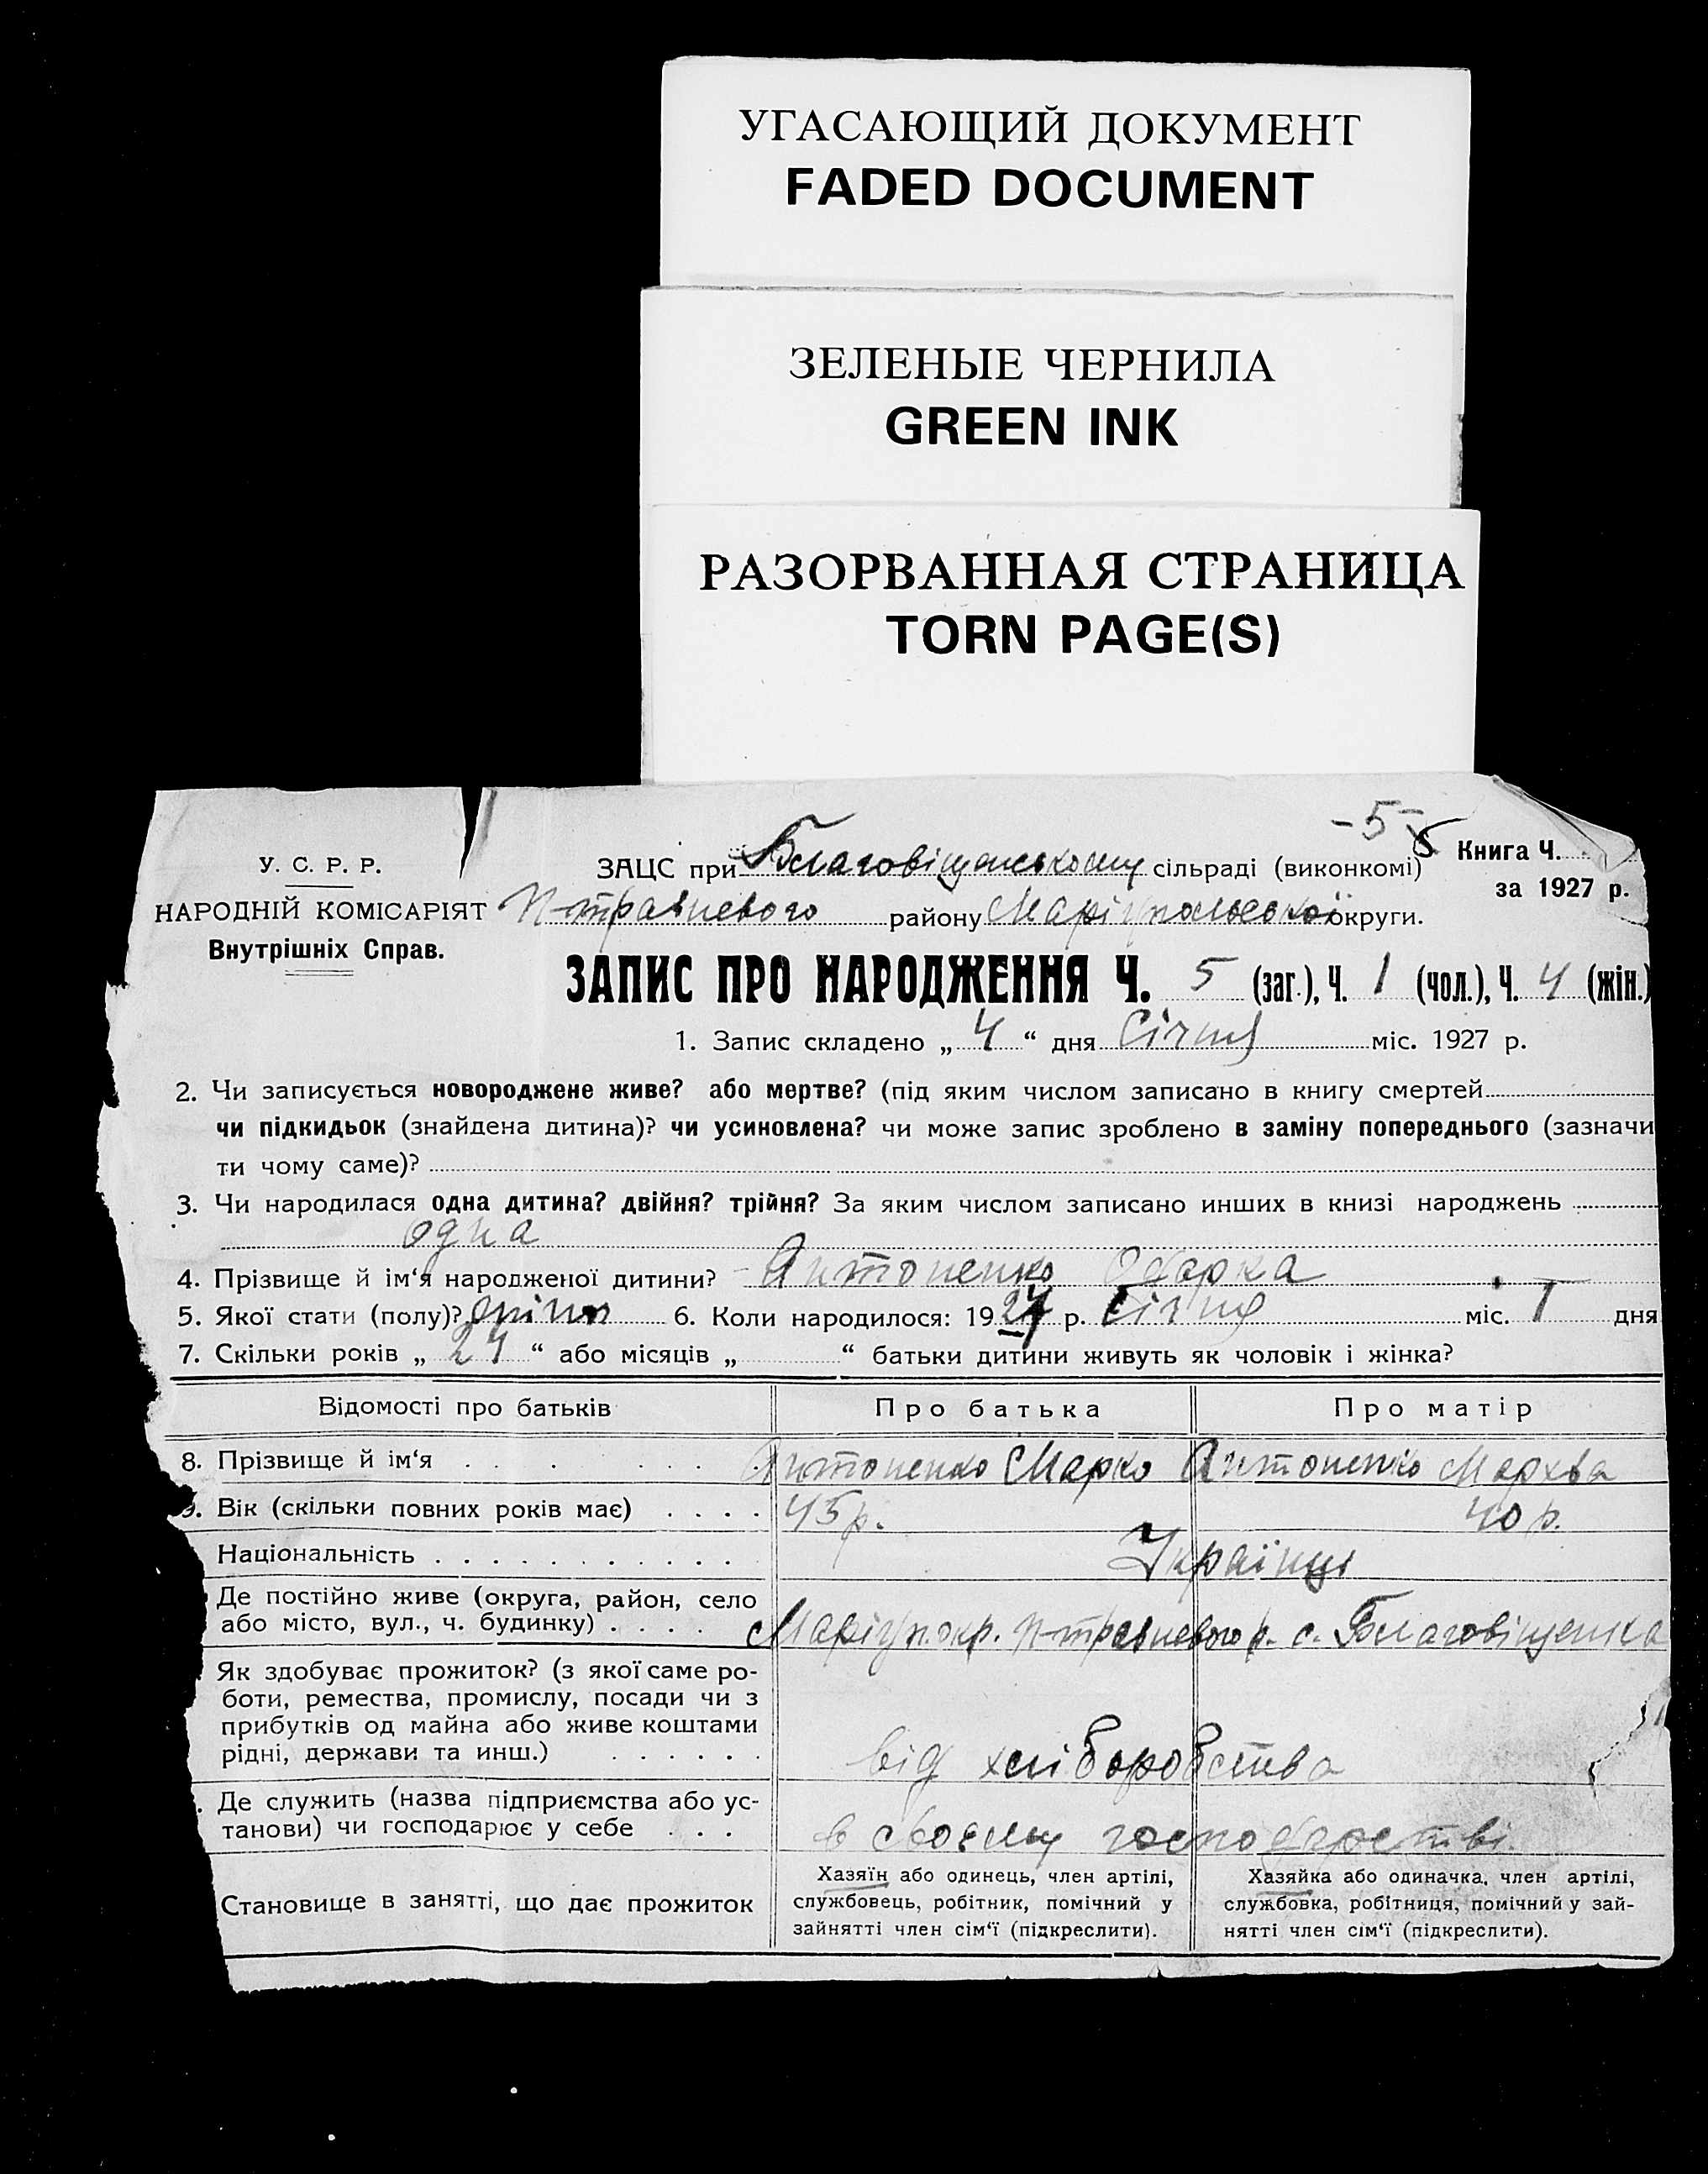 УГАСАЮЩИЙ ДОКУМЕНТ
FADED DOCUMENT
ЗЕЛЕНЫЕ ЧЕРНИЛА
GREEN INK
РАЗОРВАННАЯ СТРАНИЦА
TORN PAGE(S)
-5-
5
У. С. Р. Р.
НАРОДНІЙ КОМІСАРІЯТ
Внутрішніх Справ.
ЗАЦС при Благовіщенському сільраді (виконкомі)
Книга Ч.
за 1927 р.
П-травневого району Маріупольської округи.
ЗАПИС ПРО НАРОДЖЕННЯ Ч. 5 (заг.), Ч. 1 (чол.), Ч. 4 (жін.)
1. Запис складено „ 4 “ дня Січня міс. 1927 р.
2. Чи записується новороджене живе? або мертве? (під яким числом записано в книгу смертей
чи підкидьок (знайдена дитина)? чи усиновлена? чи може запис зроблено в заміну попереднього (зазначи
ти чому саме)?
3. Чи народилася одна дитина? двійня? трійня? За яким числом записано инших в книзі народжень
одна
4. Прізвище й ім‘я народженої дитини? Антоненко Одарка
5. Якої стати (полу)? 6. Коли народилося: 1927 р. Січня міс. 1 дня
7. Скільки років „ 24 “ або місяців „ “ батьки дитини живуть як чоловік і жінка?
Відомості про батьків Про батька Про матір
8. Прізвище й ім‘я Антоненко Марко Антоненко Мархва
9. Вік (скільки повних років має) 45 р. 40 р.
Національність Українці
Де постійно живе (округа, район, село
або місто, вул., ч. будинку) Маріуп. окр. П-травневого р. с. Благовіщенка
Як здобуває прожиток? (з якої саме ро-
боти, ремества, промислу, посади чи з
прибутків од майна або живе коштами
рідні, держави та инш.) від хліборобства
Де служить (назва підприємства або ус-
танови) чи господарює у себе в своєму господарстві.
Становище в занятті, що дає прожиток
Хазяїн або одинець, член артілі,
службовець, робітник, помічний у
зайнятті член сім‘ї (підкреслити).
Хазяйка або одиначка, член артілі,
службовка, робітниця, помічний у зай-
нятті член сім‘ї (підкреслити).